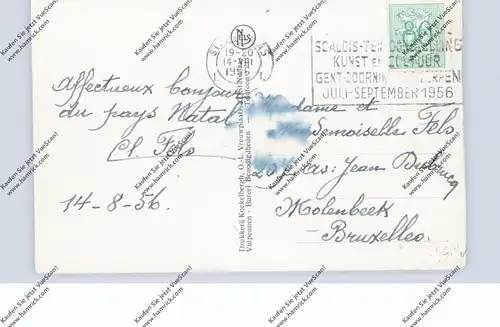 19-20
14-VIII
1956
SCALDIS-TENTOONSTELLING
KUNST EN CULTUUR
GENT-DOORNIK-ANTWERPEN
JULI-SEPTEMBER 1956
Affectueux bonjour
du pays Natal
Cl. Fels
14-8-56.
Drukkerij Keckelbergh, O.-L. Vrouwplaat
Vulpennen - Bureel Benoodigdheden
Madame et
Mesdemoiselles Fels
rue Jean
Molenbeek
Bruxelles.
Kaufen Sie jetzt VueScan!
www.hamrick.com